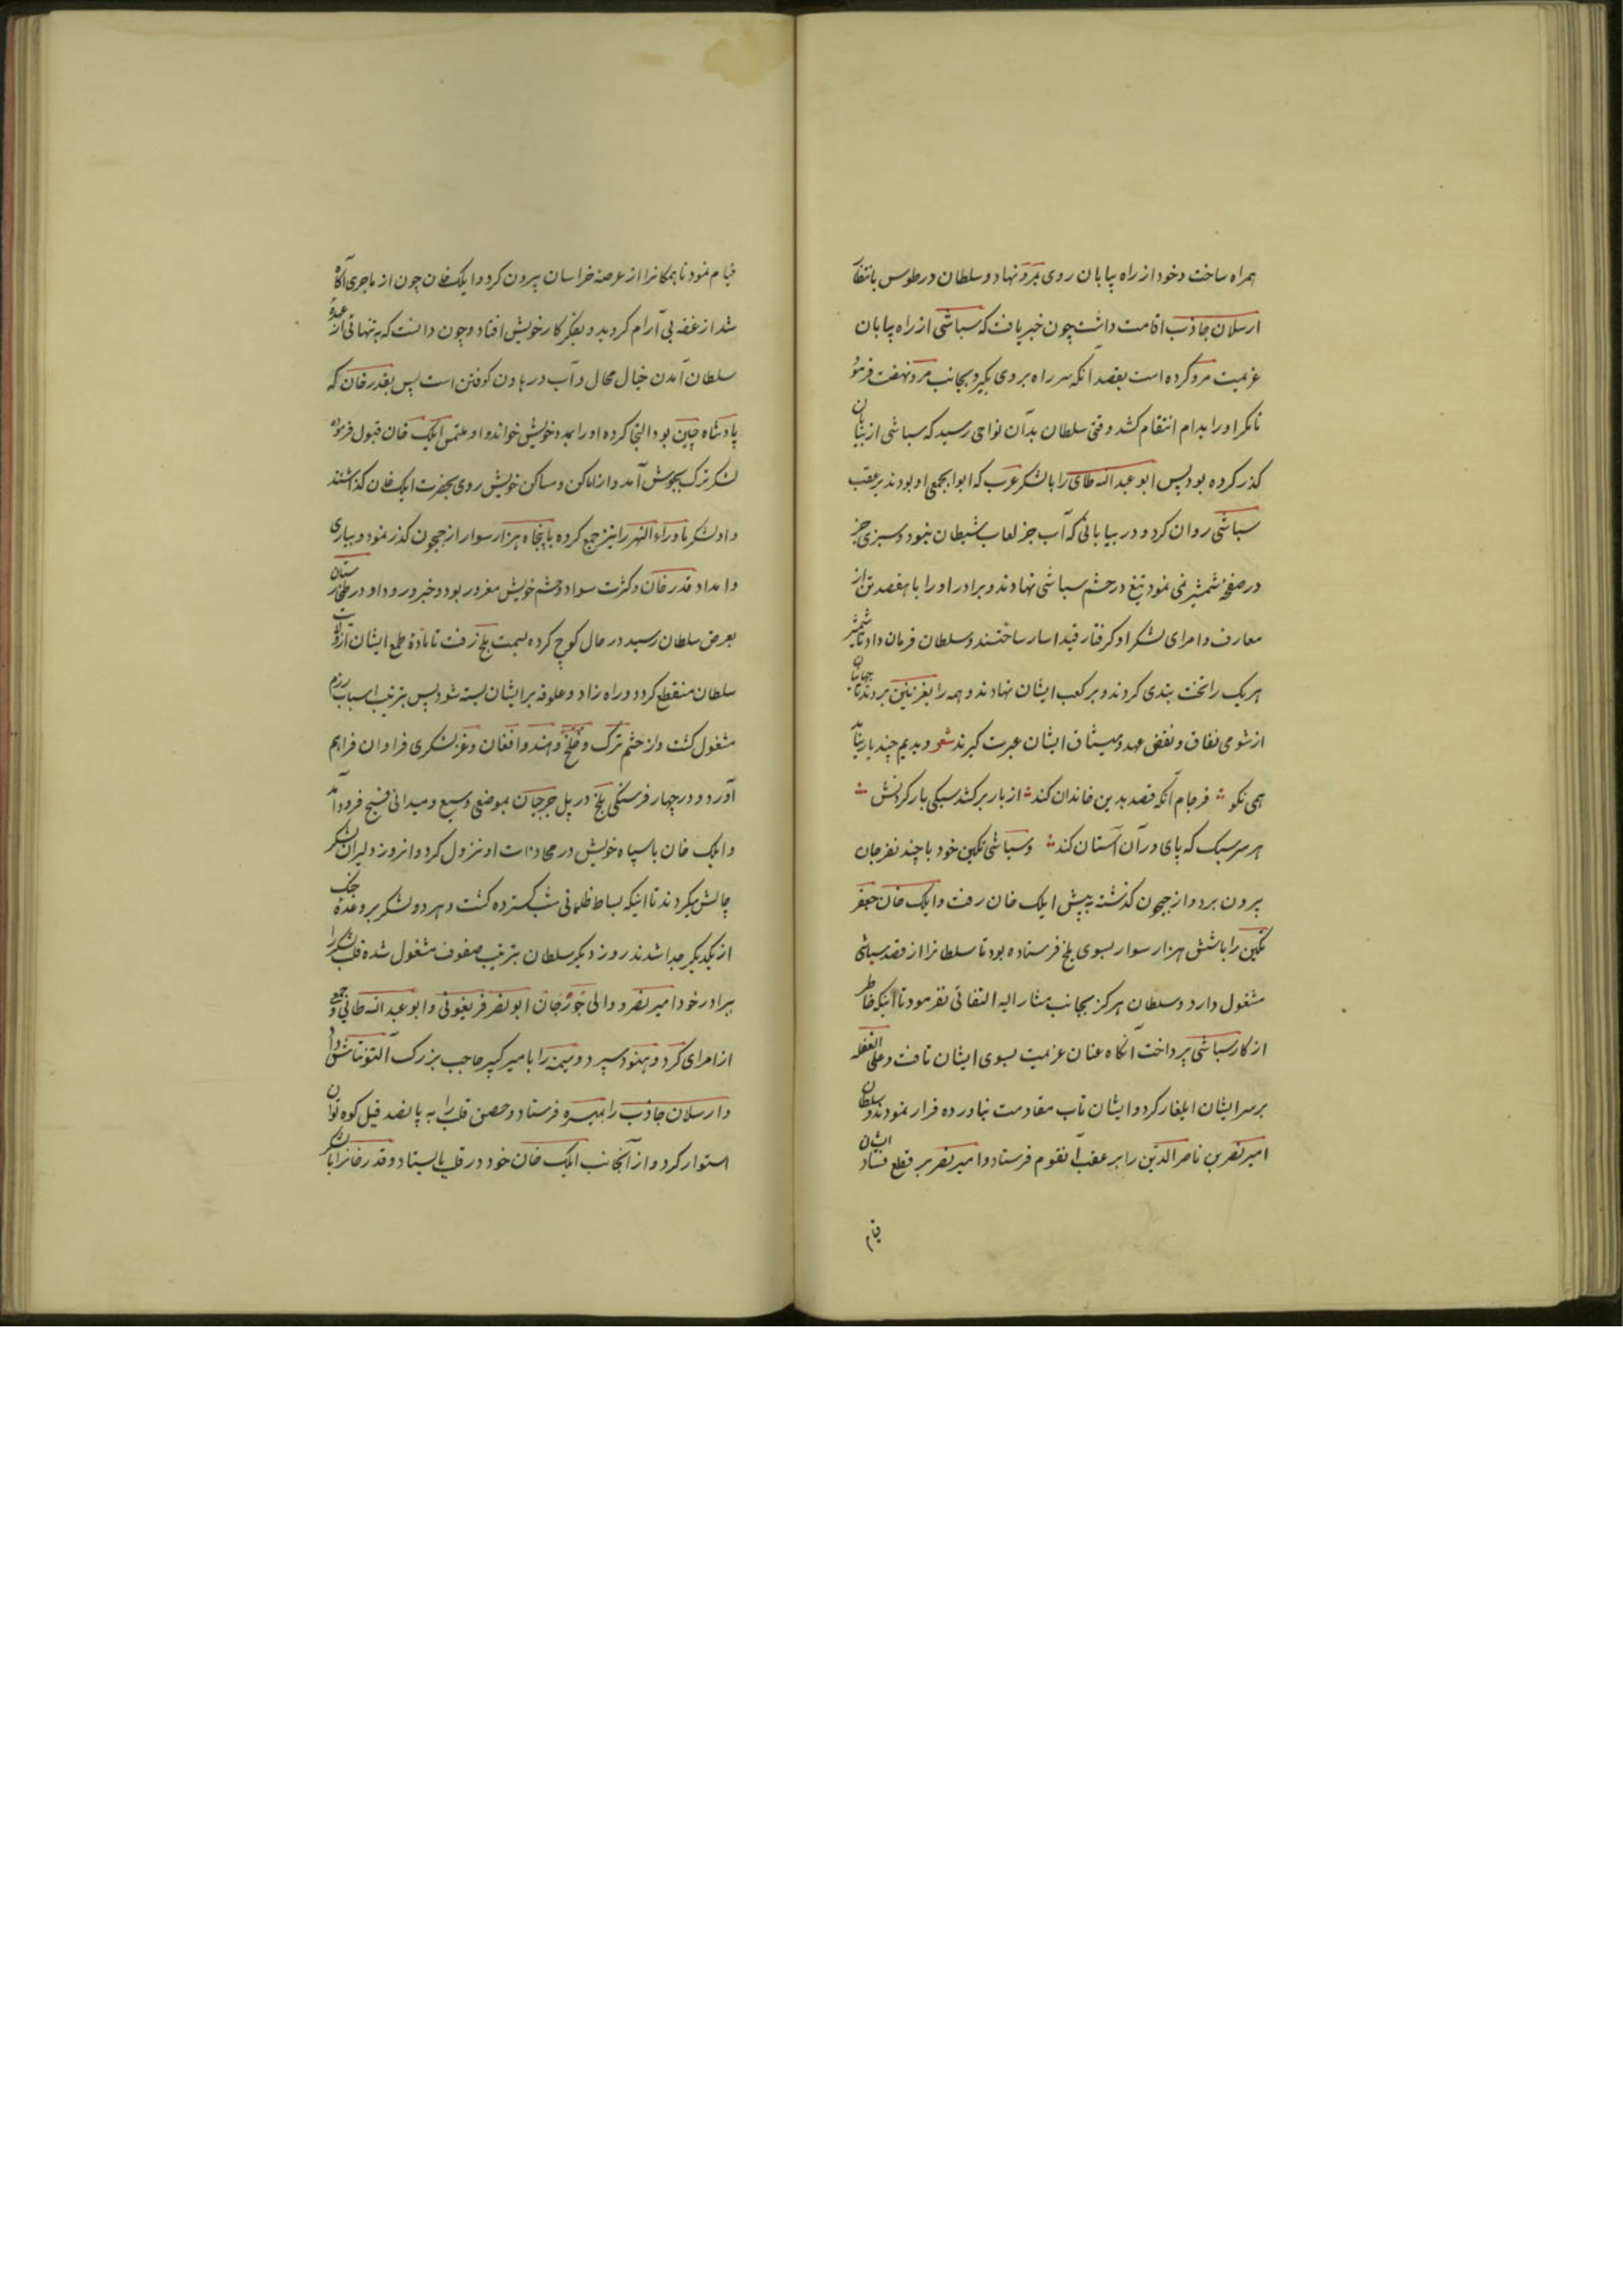 همراه ساخت و خود از راه بیابان روی بمرو نهاد و سلطان در طوس بانتظار
ارسلان جاذب اقامت داشت چون خبر یافت که سباشی از راه بیابان
عزیمت مرو کرده است بقصد آنکه سر راه بر وی بگیرد بجانب مرو نهضت فرمود
تا مکر او را بدام انتقام کشد وقتی سلطان بدان نوای رسید که سباشی از بیابان
گذر کرده بود پس ابو عبد الله طای را با لشکر عرب که ابوابجمعی او بودند بر عقب
سباشی روان کرد و در بیابانی که آب جز لعاب شیطان نبود و سبزی جز
در صفحهٔ شمشیر نمی نمود تیغ در حشم سباشی نهادند و برادر او را با هفصد تن از
معارف و امرای لشکر او گرفتار قید اسار ساختند و سلطان فرمان داد تا شمشیر
هر یک را تخت بندی کردند و بر کعب ایشان نهادند و همه را بغزنین بردند تا جهانیان
از شومی نفاق و نقض عهد و میثاق ایشان عبرت گیرند شعر و دیدیم چند بار نیامد
همی نکو فرجام آنکه قصد بدین خاندان کند از بار بر کشد سبکی بار گردنش
هر سر سبک که پای در آن آستان کند و سباشی تکین خود با چند نفر جان
بیرون برد و از جیحون گذشته بپیش ایلک خان رفت و ایلک خان جعفر
تکین را با شش هزار سوار بسوی بلخ فرستاده بود تا سلطانرا از قصد سباشی
مشغول دارد و سلطان هرگز بجانب مشار الیه التفاتی نفرمود تا اینکه خاطر
از کار سباشی پرداخت آنگاه عنان عزیمت بسوی ایشان تافت و علی الغفله
بر سر ایشان ایلغار کرد و ایشان تاب مقاومت نیاورده فرار نمودند و سلطان
امیر نصر بن ناصر الدین را بر عقب آنقوم فرستاد و امیر نصر بر قطع فساد ایشان
قیام
قیام نمود تا همکانرا از عرصهٔ خراسان بیرون کرد و ایلک خان چون از ماجری آگاه
شد از غصه بی آرام گردید و بفکر کار خویش افتاد و چون دانست که بتنهائی از عهدهٔ
سلطان آمدن خیال محال و آب در هاون کوفتن است پس بقدر خان که
پادشاه چین بود التجا کرده او را بمدد خویش خواند و او ملتمس ایلک خان قبول فرموده
لشکر ترک بجوش آمد و از اماکن و مساکن خویش روی بحضرت ایلک خان گذاشتند
و او لشکر ماوراء النهر را نیز جمع کرده با پنجاه هزار سوار از جیحون گذر نمود و بیاری
و امداد قدر خان و کثرت سواد و حشم خویش مغرور بود و خبر ورود او در طخارستان
بعرض سلطان رسید در حال کوچ کرده بسمت بلخ رفت تا مادهٔ طمع ایشان از ولایت
سلطان منقطع گردد و راه زاد و علوفه بر ایشان بسته شود پس بترتیب اسباب رزم
مشغول گشت و از حشم ترک و خلج و هند و افغان و غز لشکری فراوان فراهم
آورد و در چهار فرسنگی بلخ در پل جرجیان بموضعی وسیع و میدانی فسیح فرود آمد
و ایلک خان با سپاه خویش در محاذات او نزول کرد و انروز دلیران لشکر
چالش میکردند تا اینکه بساط ظلمانی شب گسترده گشت و هر دو لشکر بر وعدهٔ جنگ
از یکدیگر جدا شدند روز دیگر سلطان بترتیب صفوف مشغول شده قلب لشکر را
ببرادر خود امیر نصر و والی جوزجان ابو نصر فریغونی و ابو عبد الله طائی و جمعی
از امرای کرد و هنود سپرد و میمنه را با میر کبیر حاجب بزرگ آلتونتاش داد
و ارسلان جاذب را بمیسره فرستاد و حصن قلب را به پانصد فیل کوه توان
استوار کرد و از آنجانب ایلک خان خود در قلب بایستاد و قدر خانرا با لشکر